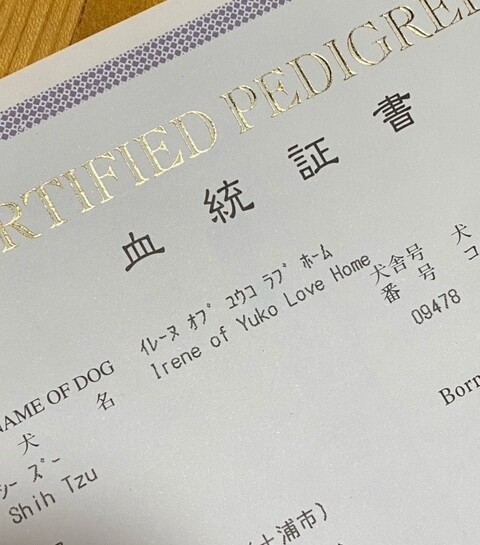 RTIFIED PEDIGREE
血統証書
ｲﾚｰﾇ ｵﾌﾞ ﾕｳｺ ﾗﾌﾞ ﾎｰﾑ
NAME OF DOG Irene of Yuko Love Home
犬名
犬舎号 犬
番号 コ
09478
Born
ｼｰｽﾞｰ
Shih Tzu
土浦市）